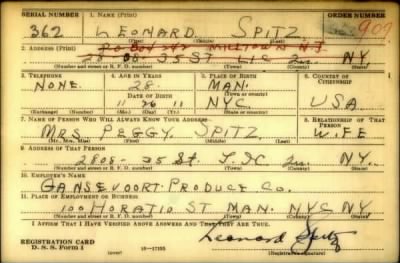 SERIAL NUMBER 1. NAME (Print) ORDER NUMBER
362 LEONARD SPITZ 907
2. ADDRESS (Print)
P.O. BOX 242 MILLTOWN N.J.
28-08-35 ST. L.I.C. Qu. N.Y.
(Number and street or R. F. D. number) (Town) (County) (State)
3. TELEPHONE 4. AGE IN YEARS 5. PLACE OF BIRTH 6. COUNTRY OF CITIZENSHIP
NONE. 28. MAN.
DATE OF BIRTH (Town or county)
11 26 11 NYC USA
(Exchange) (Number) (Mo.) (Day) (Yr.) (State or country)
7. NAME OF PERSON WHO WILL ALWAYS KNOW YOUR ADDRESS 8. RELATIONSHIP OF THAT PERSON
MRS. PEGGY SPITZ WIFE
(Mr., Mrs., Miss) (First) (Middle) (Last)
9. ADDRESS OF THAT PERSON
2808-35 St. L.I.C. Qu. N.Y.
(Number and street or R. F. D. number) (Town) (County) (State)
10. EMPLOYER'S NAME
GANSEVOORT PRODUCE CO.
11. PLACE OF EMPLOYMENT OR BUSINESS
100 HORATIO ST MAN. NYC NY
(Number and street or R. F. D. number) (Town) (County) (State)
I AFFIRM THAT I HAVE VERIFIED ABOVE ANSWERS AND THAT THEY ARE TRUE.
REGISTRATION CARD
D. S. S. Form 1 (over) 16—17105 Leonard Spitz
(Registrant's signature)